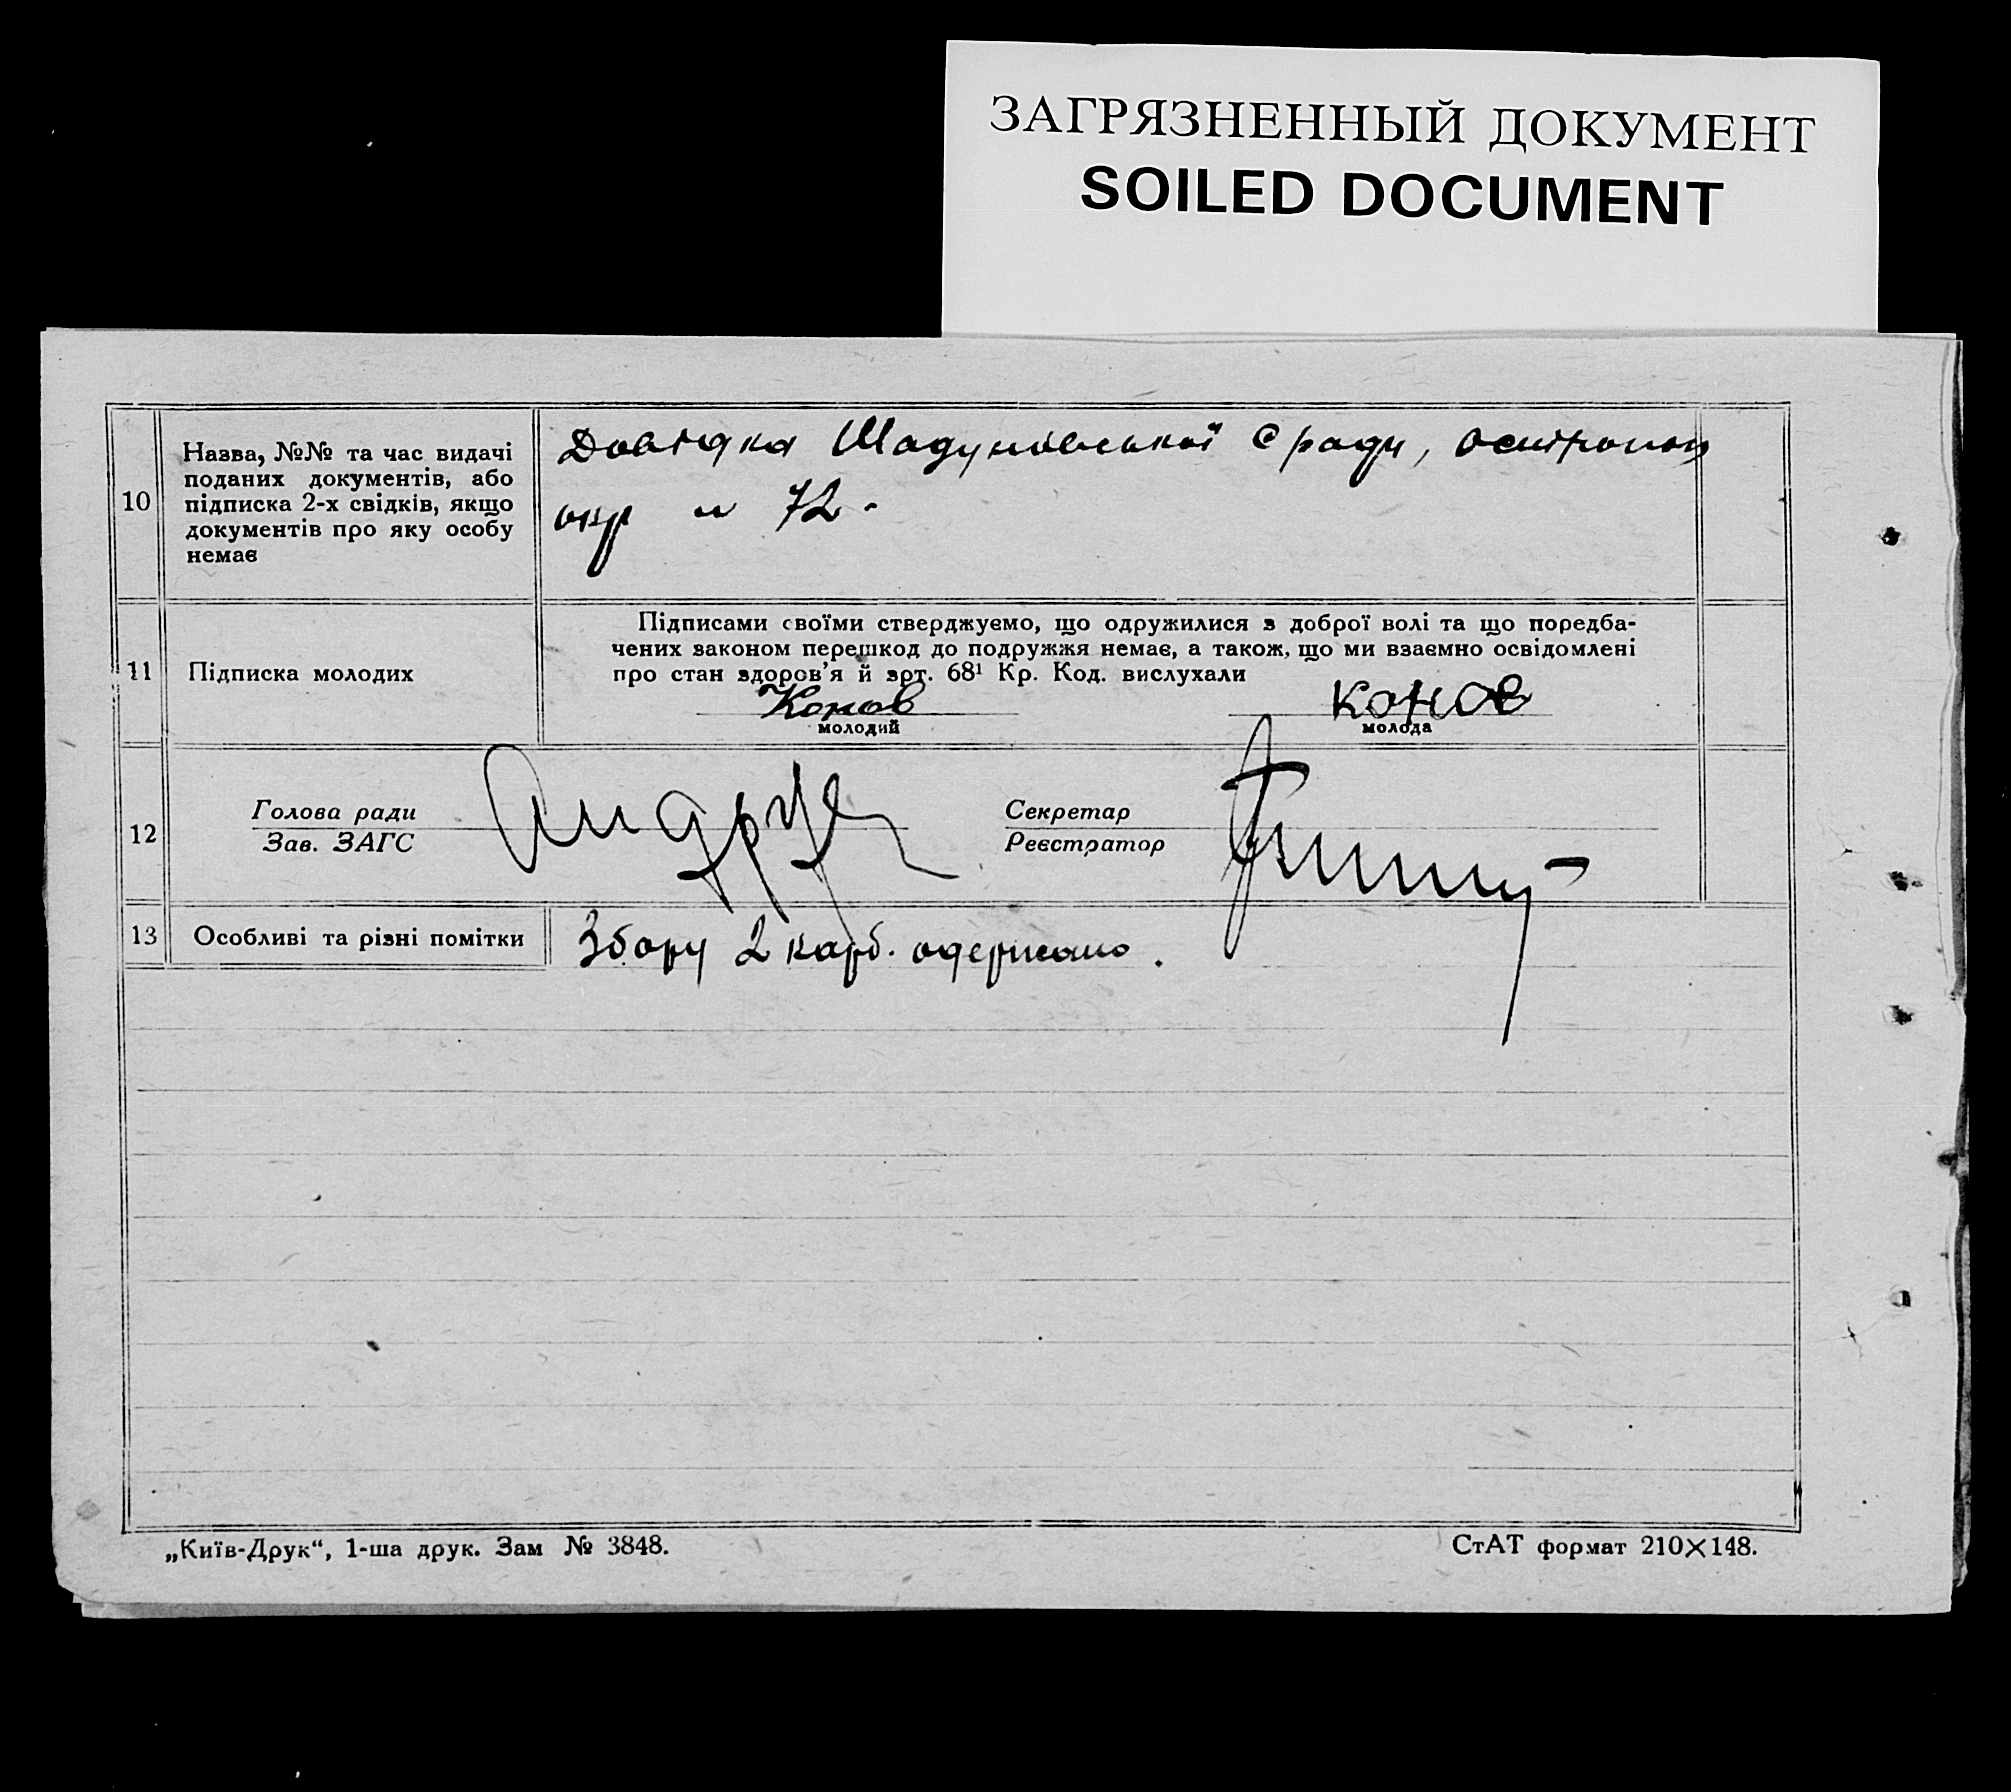 ЗАГРЯЗНЕННЫЙ ДОКУМЕНТ
SOILED DOCUMENT
10
Назва, №№ та час видачі
поданих документів, або
підписка 2-х свідків, якщо
документів про яку особу
немає
Довідка Шадунівської с ради,
окр 72.
11
Підписка молодих
Підписами своїми стверджуємо, що одружилися з доброї волі та що поредба-
чених законом перешкод до подружжя немає, а також, що ми взаємно освідомлені
про стан здоров'я й арт. 68¹ Кр. Код. вислухали
Конов
молодий
Конов
молода
12
Голова ради
Зав. ЗАГС
Секретар
Реєстратор
13
Особливі та різні помітки
Збору 2 карб. одержано.
„Київ-Друк“, 1-ша друк. Зам № 3848.
СтАТ формат 210×148.